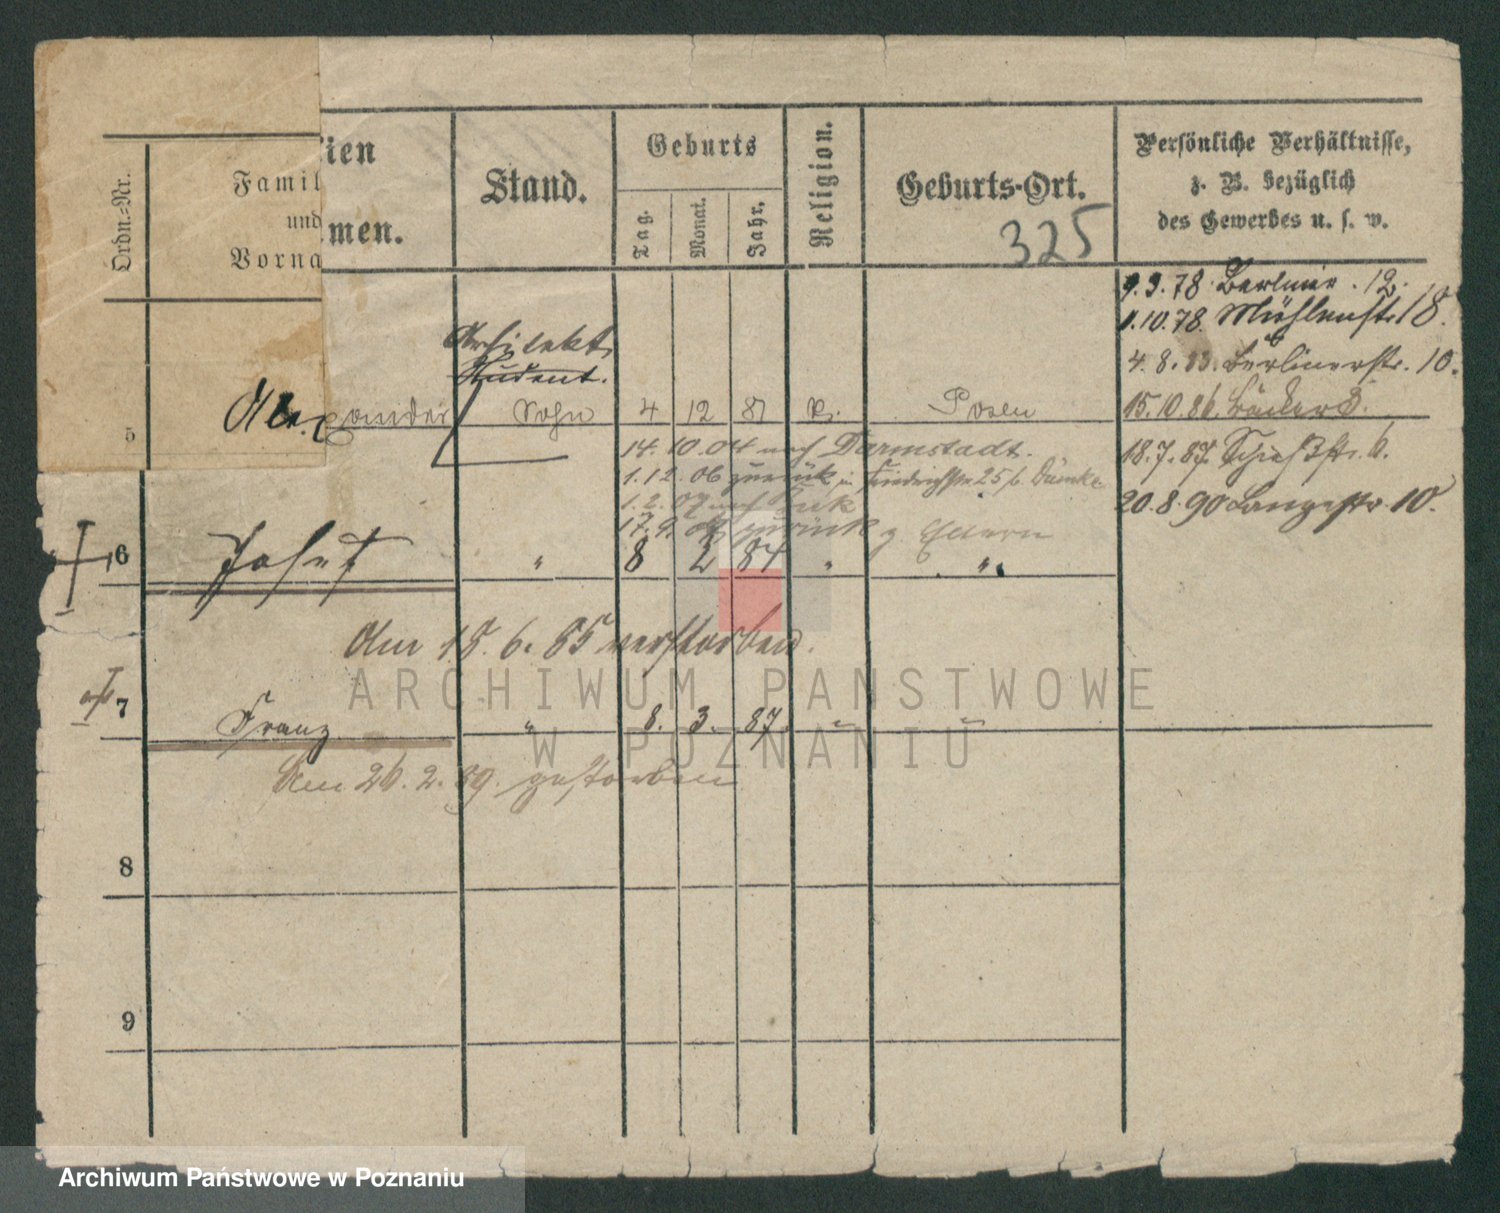 Ordn.-Nr.
Famil
und
Vorna
ien
men.
Stand.
Geburts
Tag.
Monat.
Jahr.
Religion.
Geburts-Ort.
325
Persönliche Verhältnisse,
z. B. bezüglich
des Gewerbes u. s. w.
9.3.78. Berliner. 12.
1.10.78. Mühlenstr. 18.
4.8.83. Berlinerstr. 10.
15.10.86. Bäcker 8.
18.7.87. Schießstr. 6.
20.8.90 Langestr 10.
Architekt
Student.
5 Alexander Sohn 4 12 81 k. Posen
14.10.04 nach Darmstadt.
1.12.06 zurück in Friedrichstr 25 b.
1.2.07 nach
17.9. zurück z. Eltern
6 Josef " 8 2 84 " "
Am 18.6.85 verstorben.
7 Franz " 8. 3. 87. " "
Am 26.2.89. gestorben
8
9
ARCHIWUM PAŃSTWOWE
W POZNANIU
Archiwum Państwowe w Poznaniu